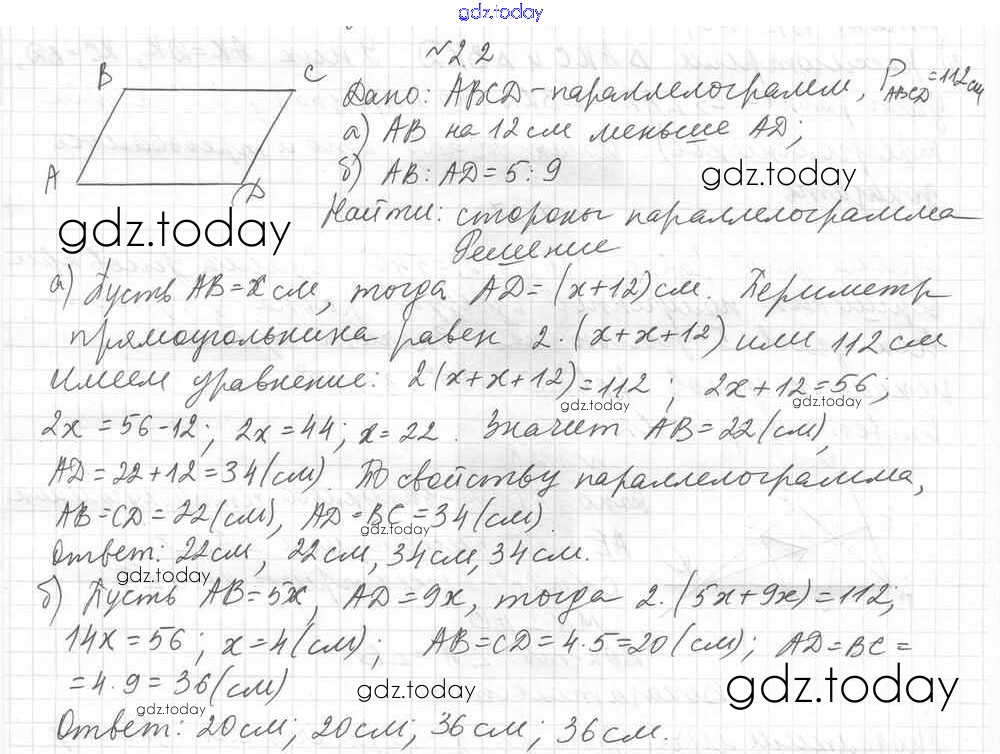 gdz.today
№ 2.2
B C
A D
Дано: ABCD - параллелограмм, P ABCD = 112 см
а) AB на 12 см меньше AD;
б) AB : AD = 5 : 9
gdz.today
gdz.today
Найти: стороны параллелограмма
Решение
а) Пусть AB = x см, тогда AD = (x+12) см. Периметр
прямоугольника равен 2·(x+x+12) или 112 см
Имеем уравнение: 2(x+x+12) = 112 ; 2x+12 = 56;
gdz.today gdz.today
2x = 56 - 12; 2x = 44; x = 22. Значит AB = 22 (см),
AD = 22 + 12 = 34 (см). По свойству параллелограмма,
AB = CD = 22 (см), AD = BC = 34 (см).
gdz.today
Ответ: 22 см, 22 см, 34 см, 34 см.
gdz.today
б) Пусть AB = 5x, AD = 9x, тогда 2·(5x+9x) = 112;
14x = 56; x = 4 (см); AB = CD = 4·5 = 20 (см); AD = BC =
= 4·9 = 36 (см)
gdz.today gdz.today
Ответ: 20 см; 20 см; 36 см; 36 см.